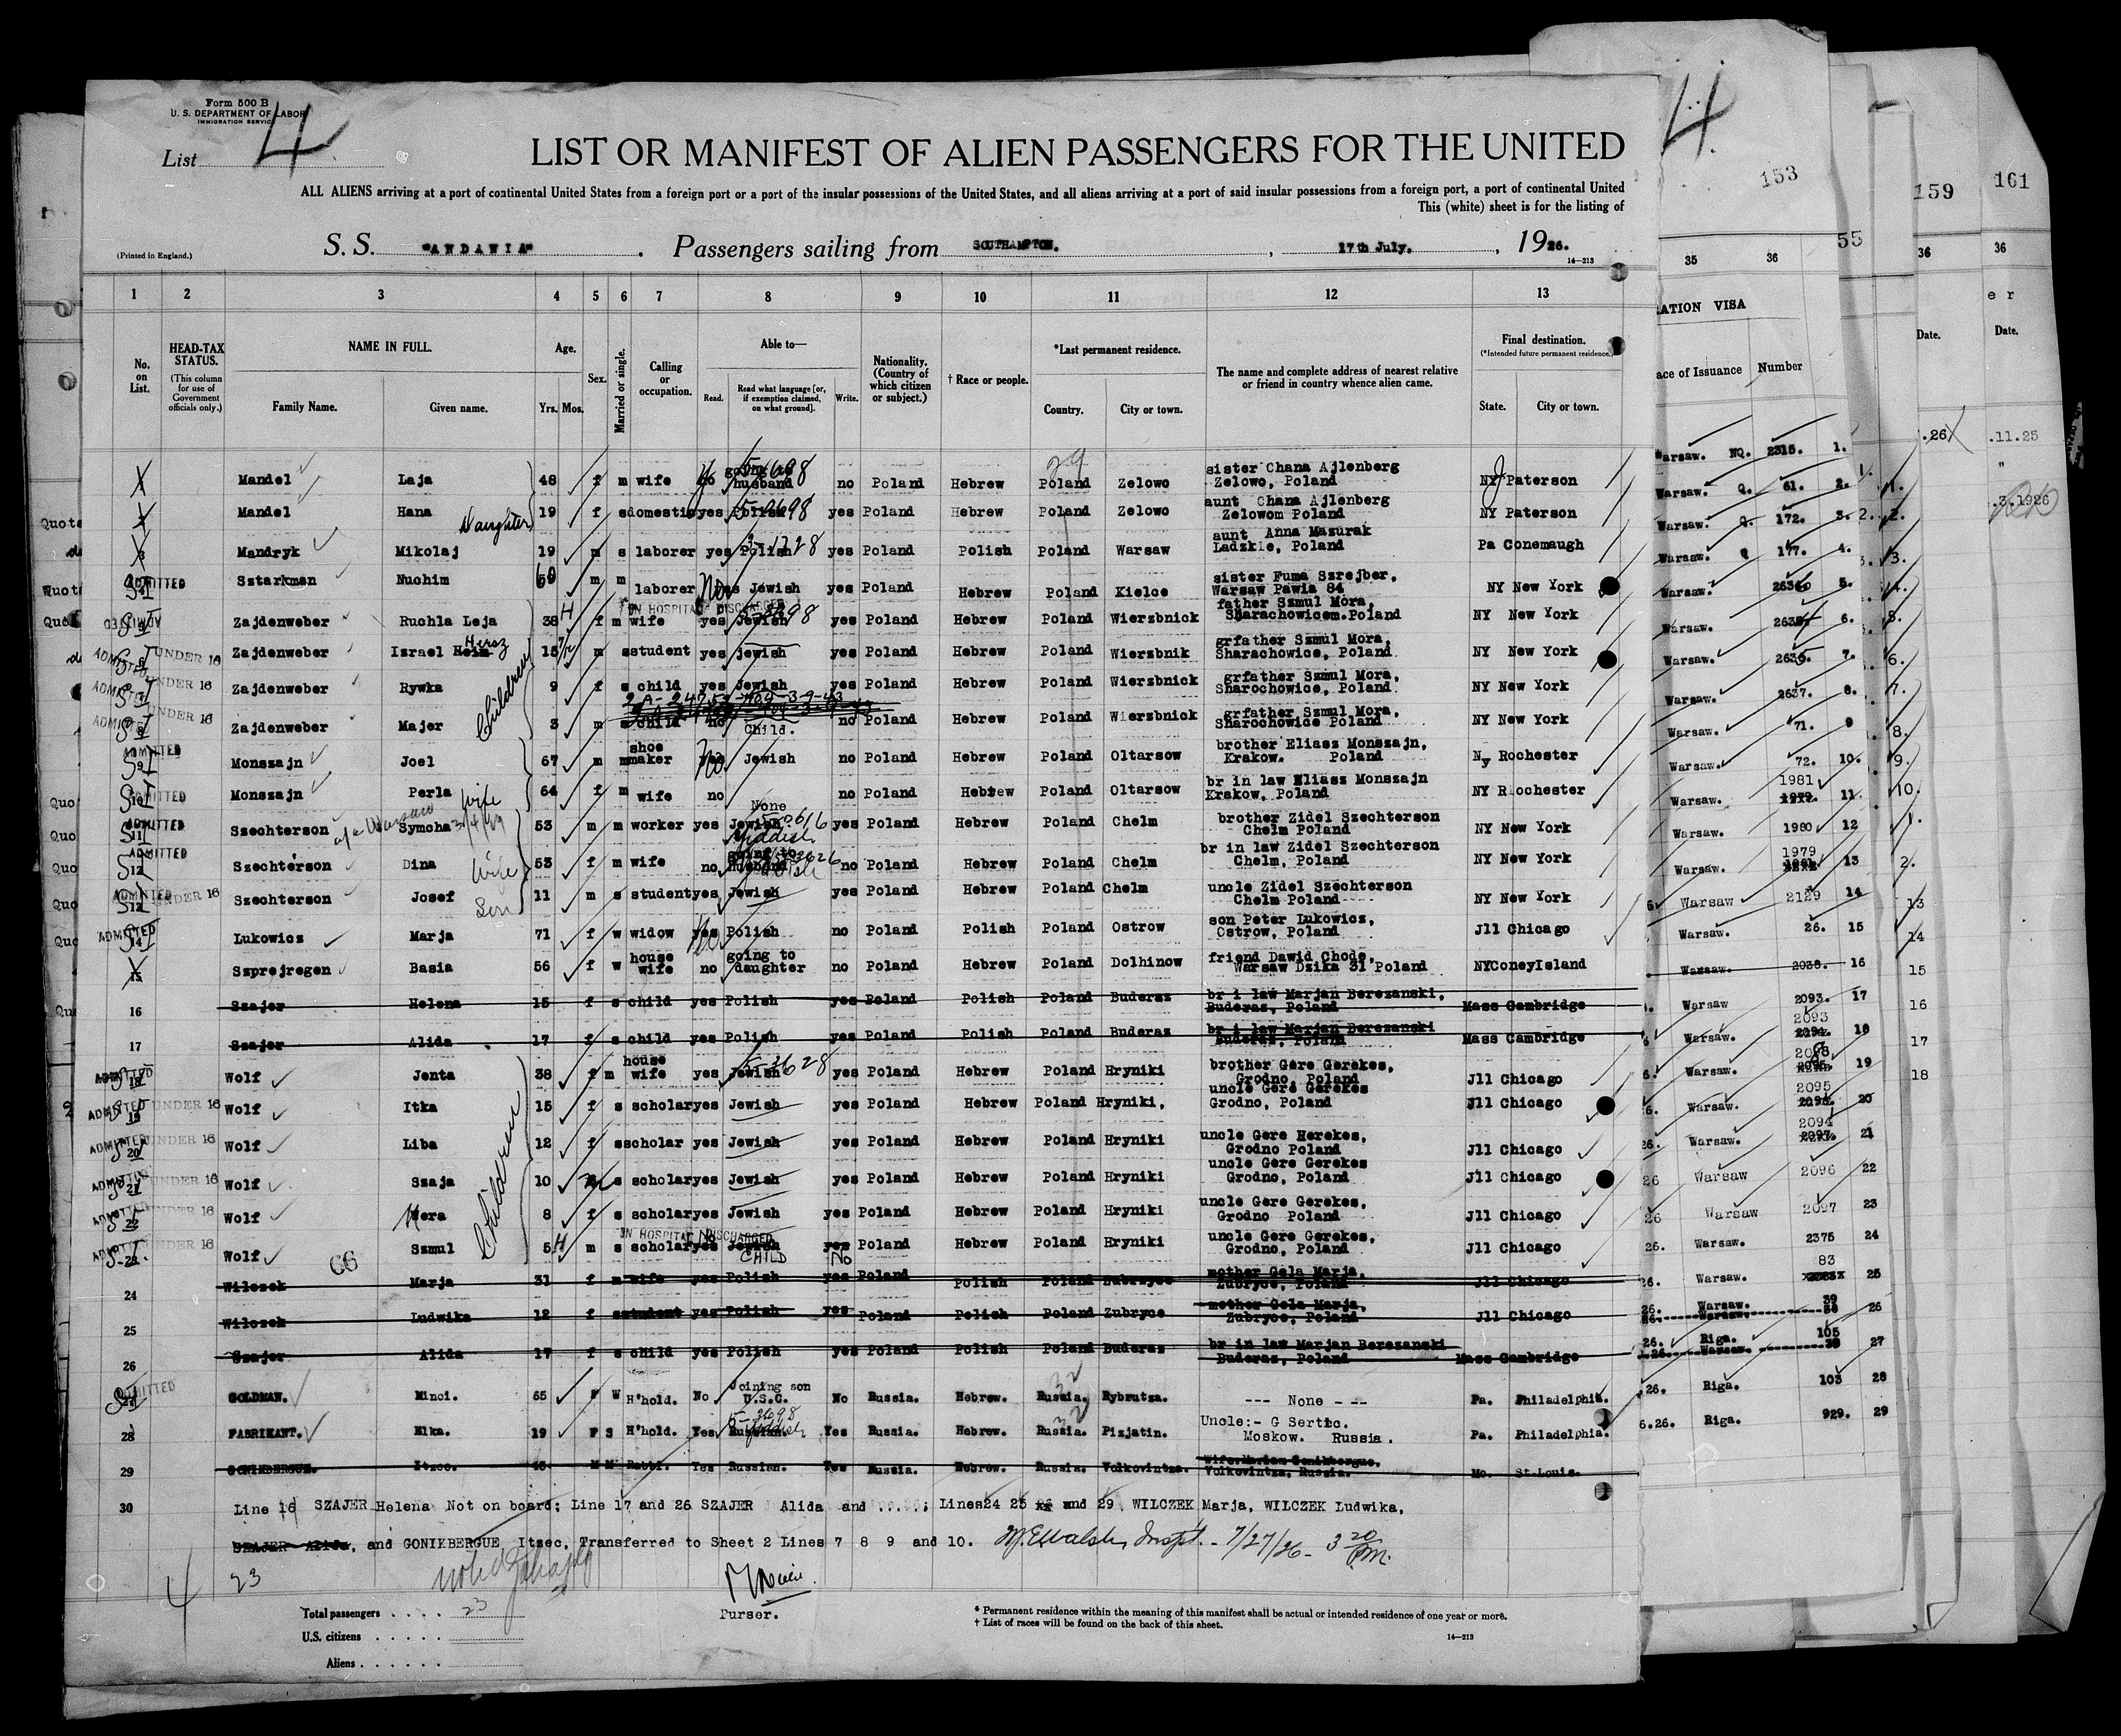 Form 500 B
U. S. DEPARTMENT OF LABOR
IMMIGRATION SERVICE
List 4
LIST OR MANIFEST OF ALIEN PASSENGERS FOR THE UNITED
ALL ALIENS arriving at a port of continental United States from a foreign port or a port of the insular possessions of the United States, and all aliens arriving at a port of said insular possessions from a foreign port, a port of continental United
This (white) sheet is for the listing of
(Printed in England.)
S. S. "ANDANIA" . Passengers sailing from SOUTHAMPTON. , 17th July. , 1926.
14—213
1 2 3 4 5 6 7 8 9 10 11 12 13
No. on List.
HEAD-TAX STATUS. (This column for use of Government officials only.)
NAME IN FULL. Family Name. Given name.
Age. Yrs. Mos.
Sex.
Married or single.
Calling or occupation.
Able to— Read. Read what language [or, if exemption claimed, on what ground]. Write.
Nationality. (Country of which citizen or subject.)
† Race or people.
*Last permanent residence. Country. City or town.
The name and complete address of nearest relative or friend in country whence alien came.
Final destination. (*Intended future permanent residence.) State. City or town.
Mandel Laja 48 f m wife going to husband no Poland Hebrew Poland Zelowo sister Chana Ajlenberg Zelowo, Poland NY Paterson
Mandel Hana Daughter 19 f s domestic yes Polish yes Poland Hebrew Poland Zelowo aunt Chana Ajlenberg Zelowom Poland NY Paterson
3 Mandryk Mikolaj 19 m s laborer yes Polish yes Poland Polish Poland Warsaw aunt Anna Mazurak Ladzkie, Poland Pa Conemaugh
ADMITTED Sztarkman Nuchim m m laborer No Jewish yes Poland Hebrew Poland Kielce sister Fuma Szrejber, Warsaw Pawia 84 NY New York
IN HOSPITAL DISCHARGED
ADMITTED Zajdenweber Ruchla Leja 38 f m wife yes Jewish yes Poland Hebrew Poland Wierzbnick father Szmul Mora, Sharachowicem.Poland NY New York
ADMITTED UNDER 16 Zajdenweber Israel Heim Hersz 15 m s student yes jewish yes Poland Hebrew Poland Wierzbnik grfather Szmul Mora, Sharachowice, Poland NY New York
ADMITTED UNDER 16 Zajdenweber Rywka 9 f s child yes Jewish yes Poland Hebrew Poland Wierzbnick grfather Szmul Mora, Sharochowice, Poland NY New York
ADMITTED UNDER 16 Zajdenweber Majer 3 m s child no Child. no Poland Hebrew Poland Wierzbnick grfather Szmul Mora, Sharochowice Poland NY New York
Children
ADMITTED 9 Monszajn Joel 67 m m shoe maker No Jewish no Poland Hebrew Poland Oltarsow brother Eliasz Monszajn, Krakow. Poland Ny Rochester
ADMITTED 10 Monszajn Perla Wife 64 f m wife no None no Poland Hebrew Poland Oltarsow br in law Eliasz Monszajn Krakow, Poland NY Rochester
ADMITTED 11 Szechterson Symcha 53 m m worker yes Jewish Yiddish yes Poland Hebrew Poland Chelm brother Zidel Szechterson Chelm Poland NY New York
ADMITTED 12 Szechterson Dina Wife 53 f m wife no going to husband no Poland Hebrew Poland Chelm br in law Zidel Szechterson Chelm, Poland NY New York
ADMITTED UNDER 16 Szechterson Josef Son 11 m s student yes Jewish yes Poland Hebrew Poland Chelm uncle Zidel Szechterson Chelm Poland NY New York
ADMITTED 14 Lukowicz Marja 71 f w widow yes No Polish no Poland Polish Poland Ostrow son Peter Lukowicz, Ostrow, Poland Jll Chicago
15 Szprejregen Basia 56 f w house wife no going to daughter no Poland Hebrew Poland Dolhinow friend Dawid Chode, Warsaw Dzika 31 Poland NYConeyIsland
16 Szajer Helena 15 f s child yes Polish yes Poland Polish Poland Buderaz br i law Marjan Berezanski, Buderaz, Poland Mass Cambridge
17 Szajer Alida 17 f s child yes Polish yes Poland Polish Poland Buderaz br i law Marjan Berezanski Buderaz, Poland Mass Cambridge
ADMITTED 18 Wolf Jenta 38 f m house wife yes Jewish yes Poland Hebrew Poland Hryniki brother Gere Gerekes, Grodno, Poland Jll Chicago
ADMITTED UNDER 16 19 Wolf Itka 15 f s scholar yes Jewish yes Poland Hebrew Poland Hryniki, uncle Gere Gerekes Grodno, Poland Jll Chicago
ADMITTED UNDER 16 20 Wolf Liba 12 f s scholar yes Jewish yes Poland Hebrew Poland Hryniki uncle Gere Herekes, Grodno Poland Jll Chicago
ADMITTED UNDER 16 21 Wolf Szaja 10 m s scholar yes Jewish yes Poland Hebrew Poland Hryniki uncle Gere Gerekes Grodno, Poland Jll Chicago
ADMITTED UNDER 16 22 Wolf 8 f s scholar yes Jewish yes Poland Hebrew Poland Hryniki uncle Gere Gerekes, Grodno Poland Jll Chicago
IN HOSPITAL DISCHARGED
ADMITTED UNDER 16 23 Wolf Szmul 5 m s scholar yes No Jewish CHILD yes No Poland Hebrew Poland Hryniki uncle Gere Gerekes, Grodno, Poland Jll Chicago
Children
66
24 Wilczek Marja 31 f m wife yes Polish yes Poland Polish Poland Zubryce mother Gela Marja, Zubryce, Poland Jll Chicago
25 Wilczek Ludwika 12 f s student yes Polish yes Poland Polish Poland Zubryce mother Gela Marja, Zubryce, Poland Jll Chicago
26 Szajer Alida 17 f s child yes Polish yes Poland Polish Poland Buderaz br in law Marjan Berezanski Buderaz, Poland Mass Cambridge
ADMITTED 27 GOLDMAN. Minci. 65 F W H'hold. No Joining son U.S.C. No Russia. Hebrew. Russia. Rybrutza. --- None --- Pa. Philadelphia.
28 FABRIKANT. Elka. 19 F S H'hold. Yes Russian. Yiddish Yes Russia. Hebrew. Russia. Pizjatin. Uncle:- G Sertic. Moskow. Russia. Pa. Philadelphia.
29 GONIKBERGUE. Itzec. M M Rabbi. Yes Russian. Yes Russia. Hebrew. Russia. Volkovintza. Wife.Mariam Gonikbergue, Volkovintza, Russia. Mo. St-Louis.
30 Line 16 SZAJER Helena Not on board; Line 17 and 26 SZAJER Alida and .....; Lines24 25 and 29 WILCZEK Marja, WILCZEK Ludwika,
SZAJER Alida, and GONIKBERGUE Itzec, Transferred to Sheet 2 Lines 7 8 9 and 10. Inspt. - 7/27/26 - 3 20 PM.
4 23
Purser.
Total passengers . . . . 23
U.S. citizens . . . . .
Aliens . . . . . .
* Permanent residence within the meaning of this manifest shall be actual or intended residence of one year or more.
† List of races will be found on the back of this sheet.
14—213
4.
153
55
159
161
35 36
36
36
ATION VISA
ace of Issuance Number
Date.
Date.
.26
.11.25
.3.1926
Warsaw. NQ. 2315. 1.
Warsaw. Q. 61. 2.
Warsaw. Q. 172. 3.
Warsaw. Q 177. 4.
Warsaw. 5.
Warsaw. 6.
Warsaw. 2635 7.
Warsaw. 2637. 8.
Warsaw. 71. 9
Warsaw. 72. 10.
Warsaw. 1981 11.
Warsaw. 1980 12
Warsaw. 1979 13
Warsaw 2129 14
Warsaw. 26. 15
Warsaw. 2038. 16
Warsaw 2093. 17
Warsaw. 2093 18
Warsaw. 19
Warsaw. 2095 20
Warsaw. 2094 21
Warsaw 2096 22
Warsaw 2097 23
Warsaw. 2375 24
Warsaw. 83 25
Warsaw. 39 26
Riga. 105 27
Riga. 103 28
Riga. 929. 29